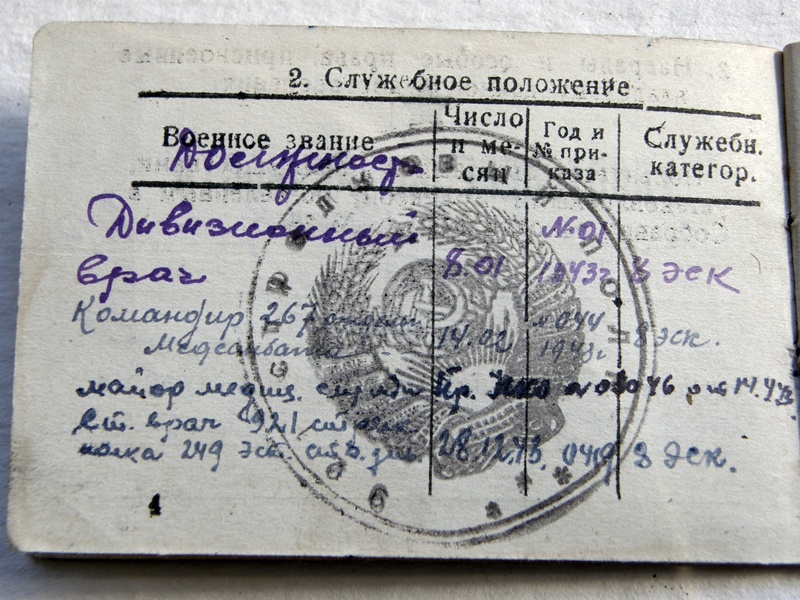 2. Служебное положение
Военное звание
Число и ме-сяц
Год и № при-каза
Служебн. категор.
Должность
Дивизионный
№ 01
врач 8.01 1943г 8 эск
Командир 267 №044
Медсанбата 14.02 1943г 8 эск.
майор медиц. службы Пр. НКО №03046 от 14.4.43.
Ст. врач 921
полка 249 эст. стр. див. 28.12.43. 049 8 эск.
4
стрелковый полк